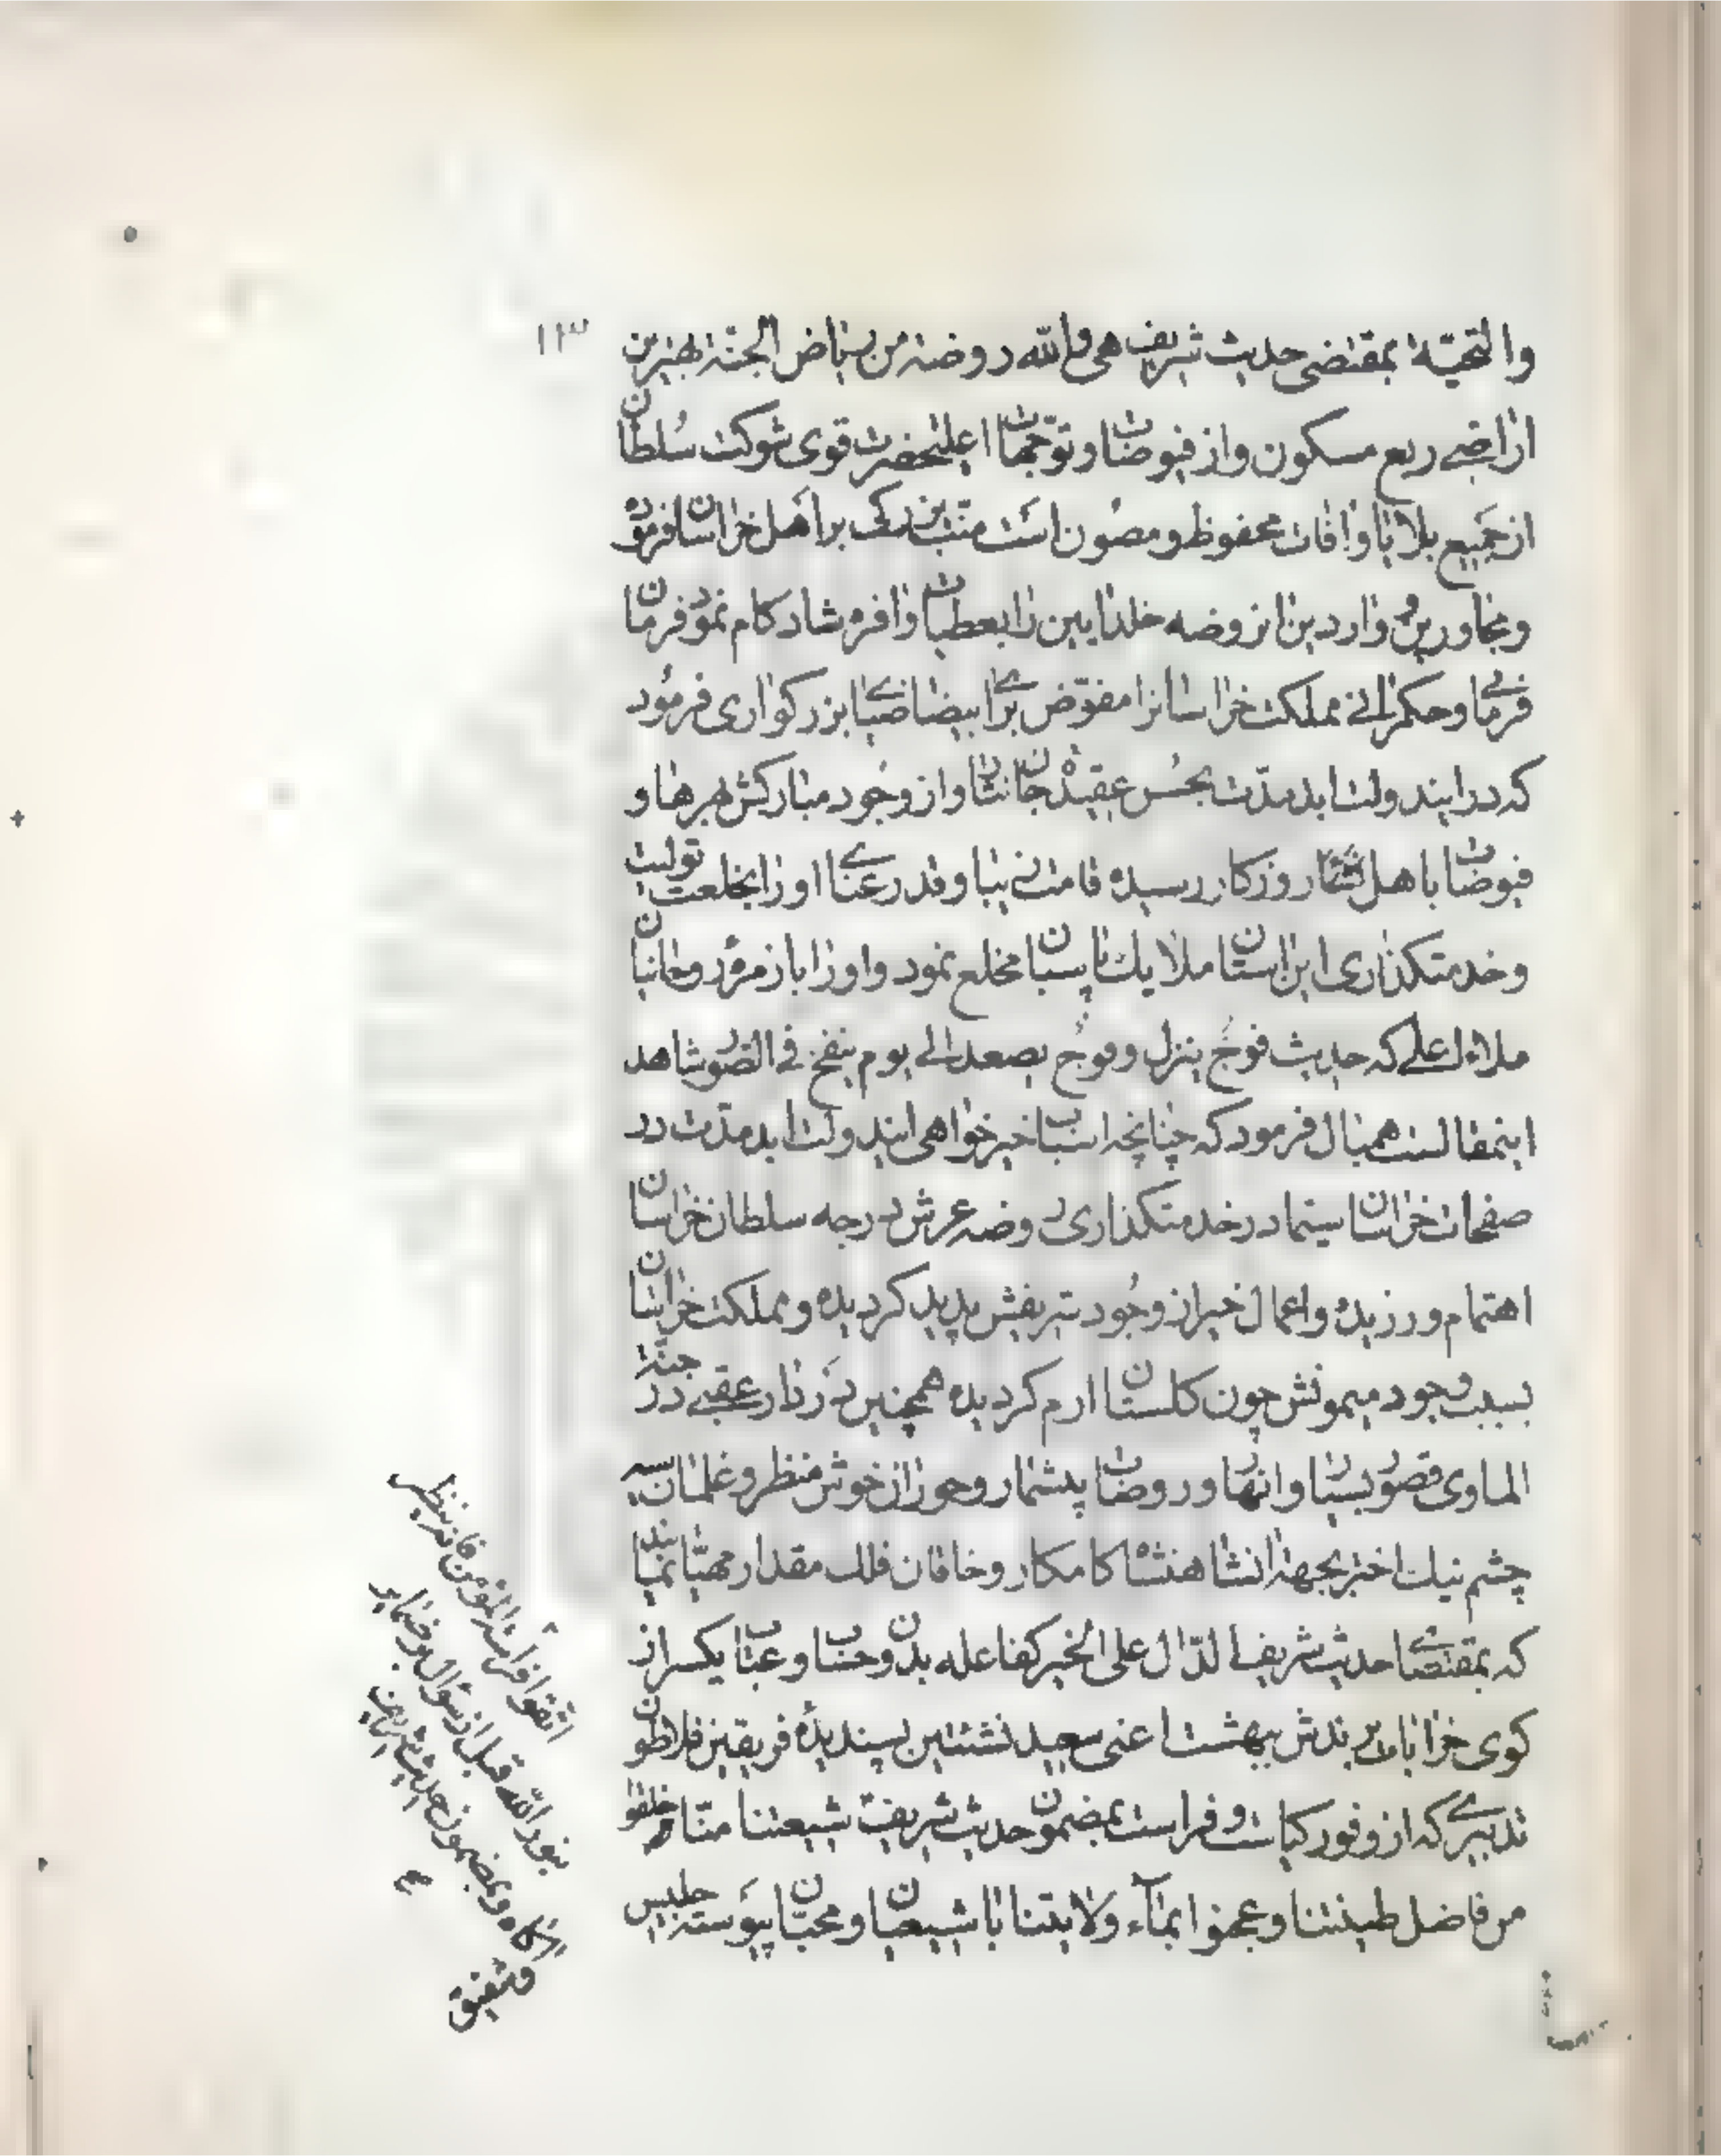 ۱۳
والتحیّة بمقتضی حدیث شریف هی والله روضة من ریاض الجنّة بهترین
اراضی ربع مسکون و از فیوضات و توجّهات اعلیحضرت قوی شوکت سُلطان
از جمیع بلایا و آفات محفوظ و مصُون است منّت بزرکی بر اهل خراسان فرموده
و مجاورین و واردین انروضه خلد ایین را بعطیات وافره شاد کام نمود فرمان
فرمائی و حکمرانی مملکت خراسانرا مفوّض برای بیضا ضیای بزرکواری فرمود
که در ایندولت ابد مدّت بحُسن عقیدة جان نثار و از وجُود مبارکش بهرها و
فیوضات باهل روزکار رسیده قامت زیبا و قد رعنای او را بخلعت تولیت
و خدمتکذاری این استان ملایک پاسبان مخلع نمود و او را با زمرهٔ روحانیان
ملاء اعلی که حدیث فوجٌ ینزل و فوجٌ یصعد الی یوم ینفخ فی الصّور شاهد
اینمقالست همبال فرمود که چنانچه اسباب خیر خواهی ایندولت ابد مدّت در
صفحات خراسان سیّما در خدمتکذاری روضه عرش درجه سلطان خراسان
اهتمام ورزیده و اعمال خیر از وجُود شریفش پدید کردیده و مملکت خراسان
بسبب وجود میمونش چون کلستان ارم کردیده همچنین در دار عقبی در جنّة
الماوی قصور بسیار و انهار و روضات بیشمار و حوران خوش منظر و غلمان سیه
چشم نیک اختر بجهة انشاهنشاه کامکار و خاقان فلک مقدار مهیّا نمایند
که بمقتضای حدیث شریف الدّال علی الخیر کفاعله بدون حساب و عتاب یکسر از
کوی خرابات برندش ببهشت اعنی سعید نشئتین پسندیدهٔ فریقین فلاطون
تدبیری که از وفور کیاست و فراست بمضمون حدیث شریف شیعتنا منّا خلقوا
من فاضل طینتنا و عجنوا بماء ولایتنا با شیعیان و محبّان پیوسته جلیس
اتّقوا فراسة المؤمن فانه ینظر
بنور الله قبل از سؤال بر ضمایر
اکاه و بمضمون حدیث شریف